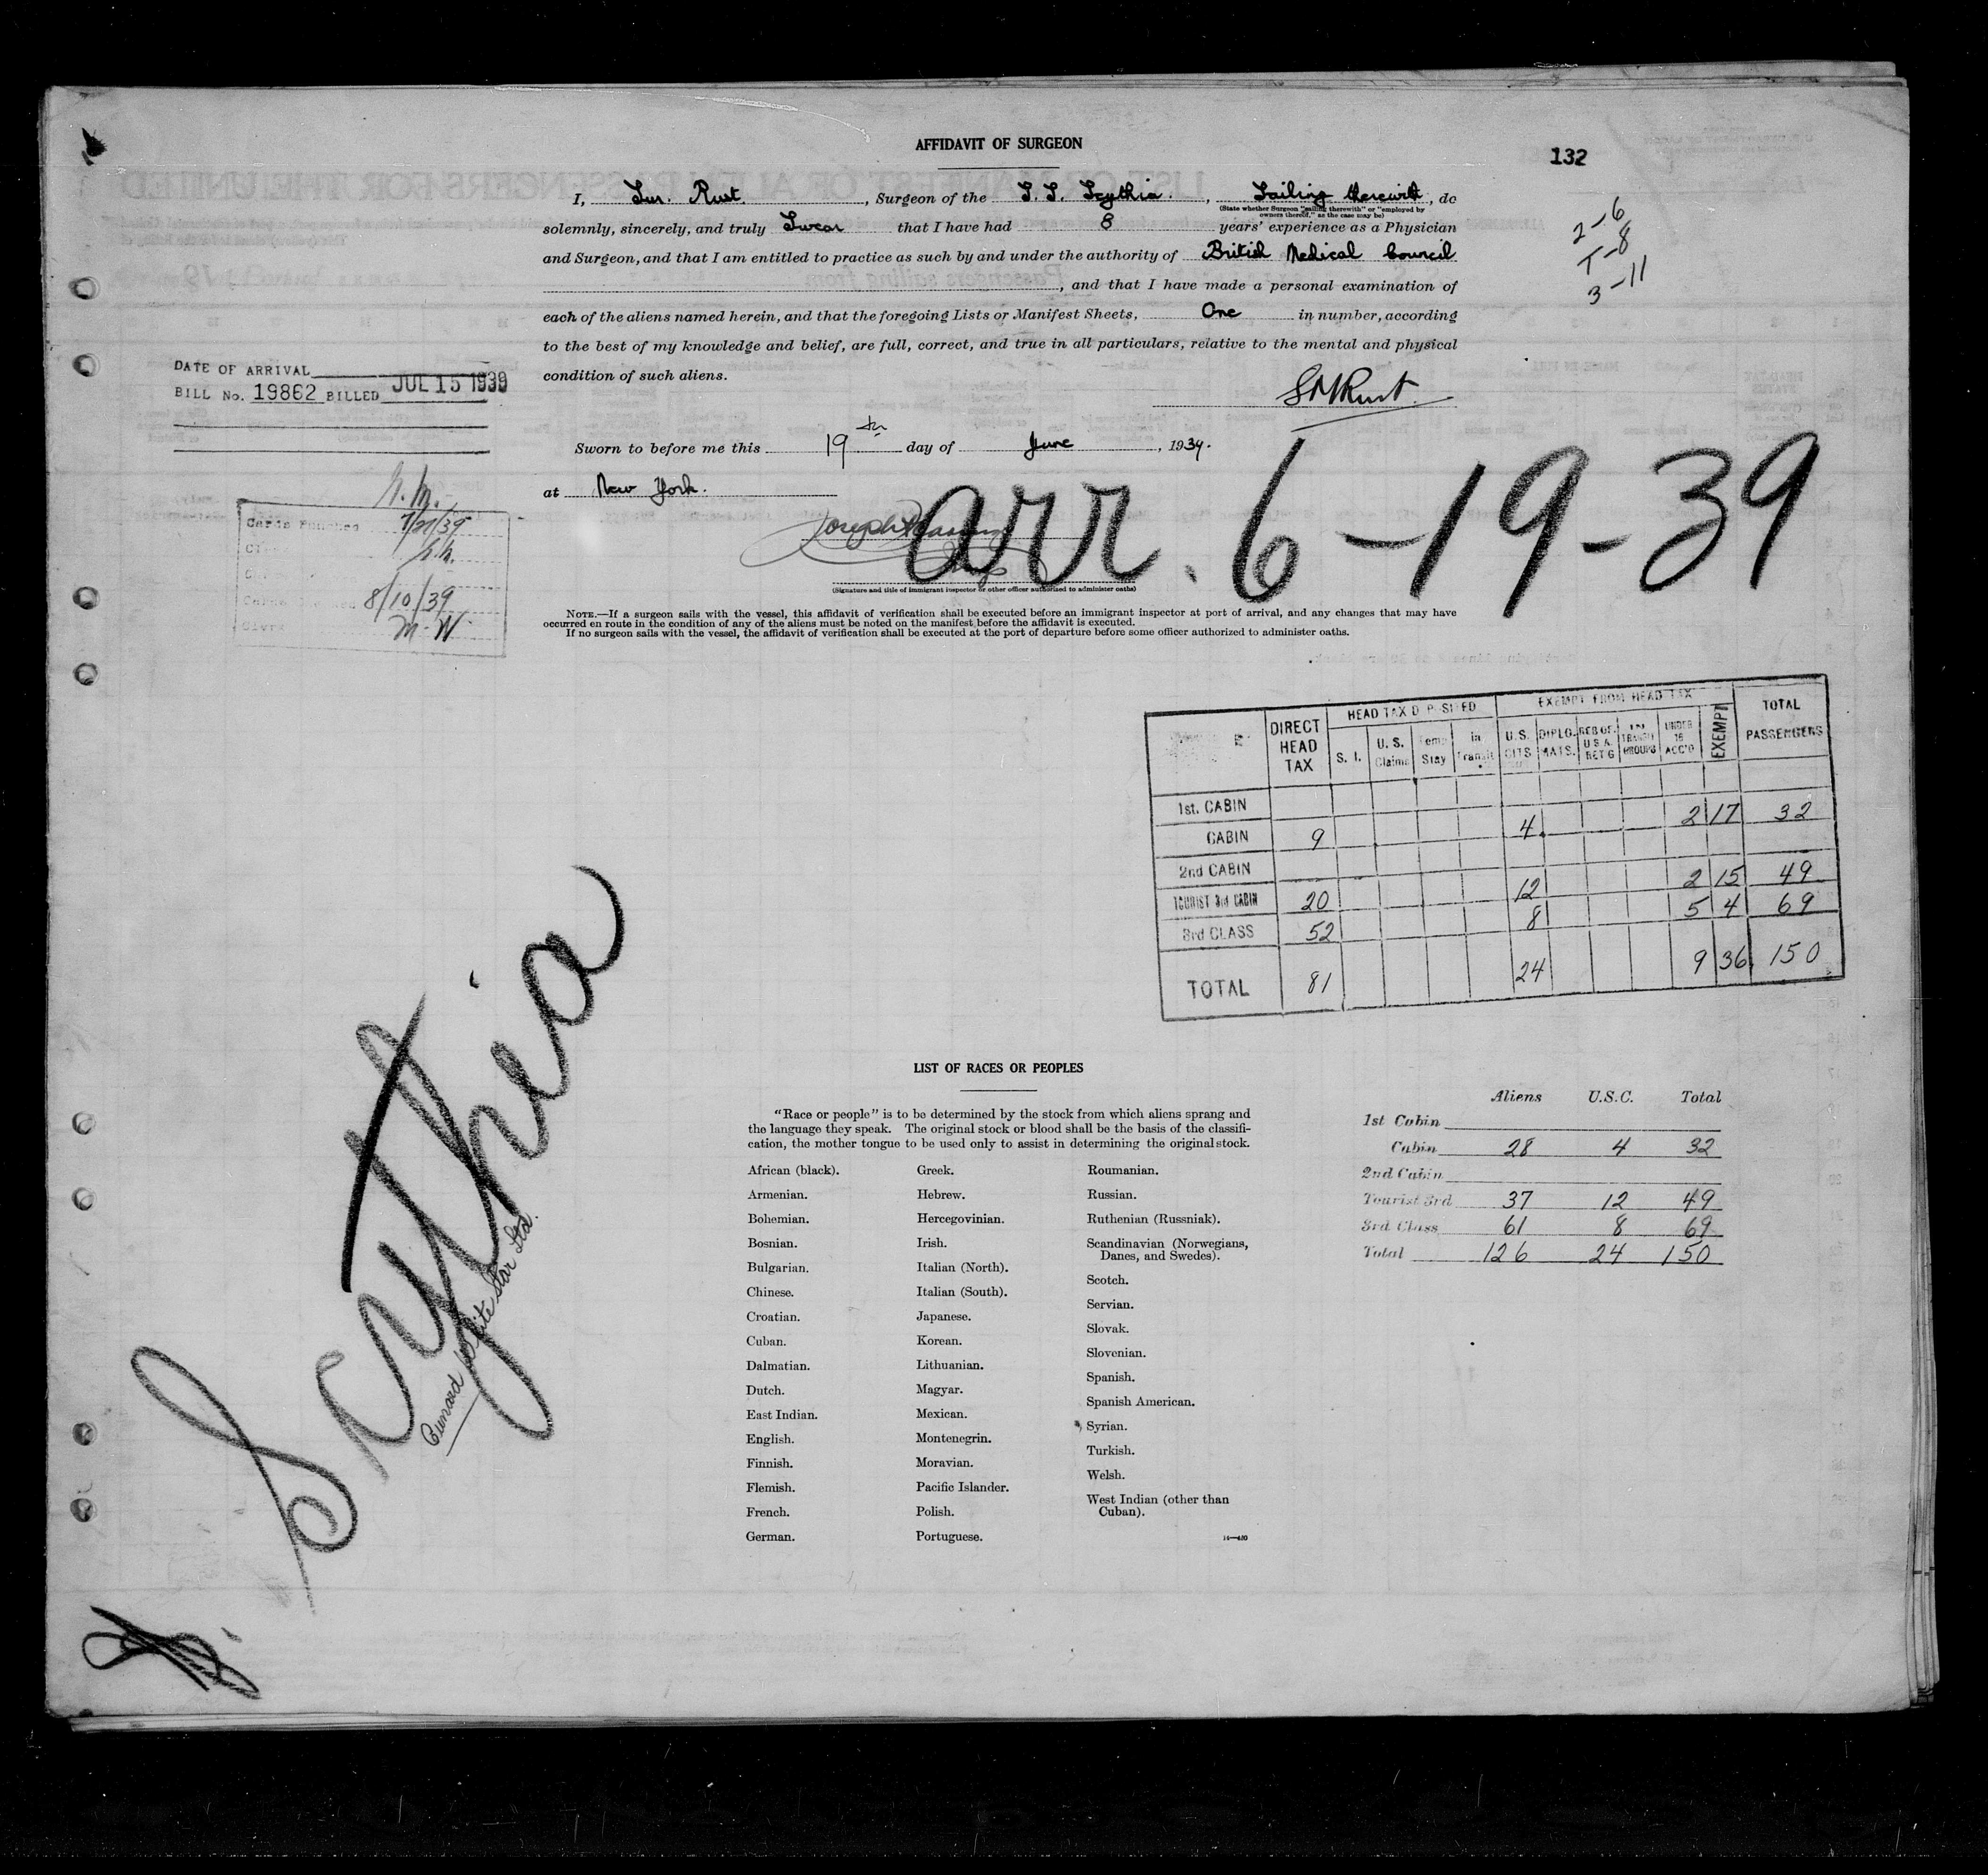 AFFIDAVIT OF SURGEON
132
I, Rust, Surgeon of the S. S. Scythia., Sailing therewith, do
(State whether Surgeon "sailing therewith" or "employed by
owners thereof," as the case may be)
solemnly, sincerely, and truly Swear that I have had 8 years' experience as a Physician
and Surgeon, and that I am entitled to practice as such by and under the authority of British Medical Council
, and that I have made a personal examination of
each of the aliens named herein, and that the foregoing Lists or Manifest Sheets, One in number, according
to the best of my knowledge and belief, are full, correct, and true in all particulars, relative to the mental and physical
condition of such aliens.
2-6
T-8
3-11
DATE OF ARRIVAL
BILL No. 19862 BILLED JUL 15 1939
Rust.
Sworn to before me this 19th day of June, 1939.
at New York.
arr. 6-19-39
Joseph
(Signature and title of immigrant inspector or other officer authorized to administer oaths)
Cards Punched 7/27/39
8/10/39
M.W.
NOTE.—If a surgeon sails with the vessel, this affidavit of verification shall be executed before an immigrant inspector at port of arrival, and any changes that may have
occurred en route in the condition of any of the aliens must be noted on the manifest before the affidavit is executed.
If no surgeon sails with the vessel, the affidavit of verification shall be executed at the port of departure before some officer authorized to administer oaths.
DIRECT HEAD TAX HEAD TAX DEPOSITED EXEMPT FROM HEAD TAX TOTAL PASSENGERS
S. I. U. S. Claims Temp Stay in Transit U.S. CITS DIPLO-MATS. RES OF. U S A. RET'G TRANSIT GROUPS UNDER 16 ACC'D EXEMPT
1st. CABIN
CABIN 9 4 2 17 32
2nd CABIN
TOURIST 3rd CABIN 20 12 2 15 49
3rd CLASS 52 8 5 4 69
TOTAL 81 24 9 36 150
Scythia
Cunard White Star Ltd.
LIST OF RACES OR PEOPLES
"Race or people" is to be determined by the stock from which aliens sprang and
the language they speak. The original stock or blood shall be the basis of the classifi-
cation, the mother tongue to be used only to assist in determining the original stock.
African (black).
Armenian.
Bohemian.
Bosnian.
Bulgarian.
Chinese.
Croatian.
Cuban.
Dalmatian.
Dutch.
East Indian.
English.
Finnish.
Flemish.
French.
German.
Greek.
Hebrew.
Hercegovinian.
Irish.
Italian (North).
Italian (South).
Japanese.
Korean.
Lithuanian.
Magyar.
Mexican.
Montenegrin.
Moravian.
Pacific Islander.
Polish.
Portuguese.
Roumanian.
Russian.
Ruthenian (Russniak).
Scandinavian (Norwegians,
Danes, and Swedes).
Scotch.
Servian.
Slovak.
Slovenian.
Spanish.
Spanish American.
Syrian.
Turkish.
Welsh.
West Indian (other than
Cuban).
Aliens U.S.C. Total
1st Cabin
Cabin 28 4 32
2nd Cabin
Tourist 3rd 37 12 49
3rd Class 61 8 69
Total 126 24 150